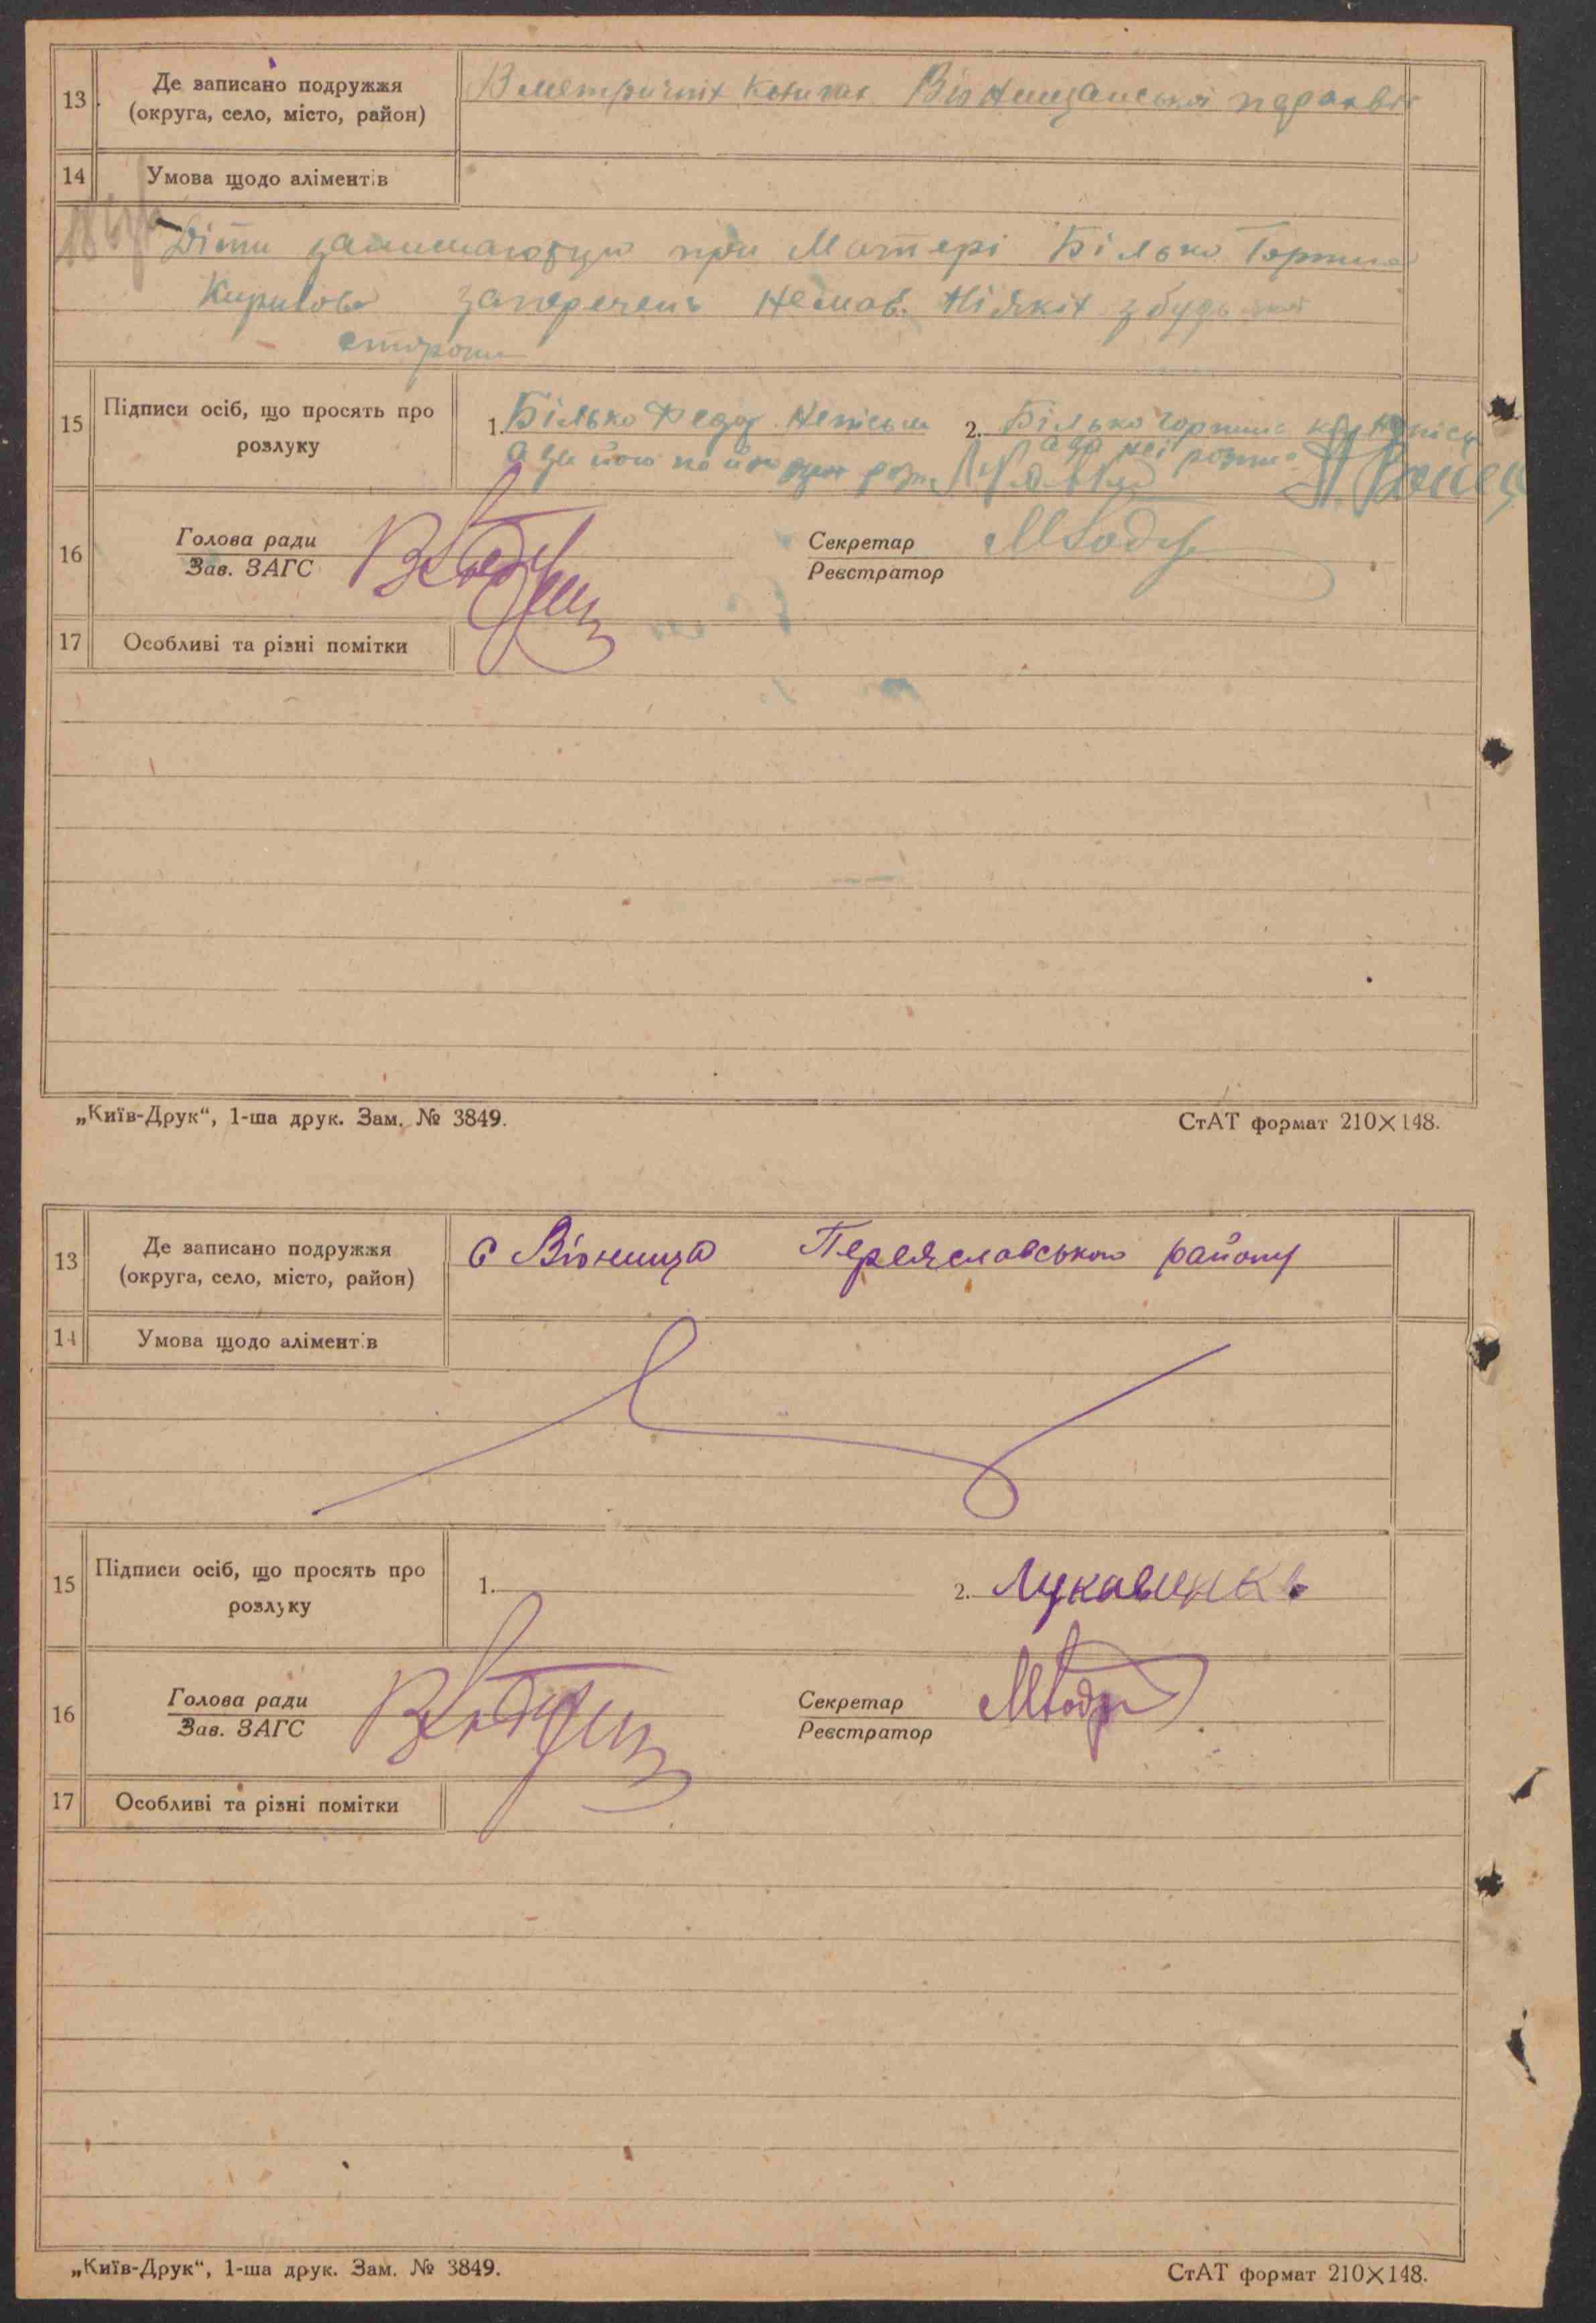 13 Де записано подружжя В метричніх Книгах Віннищанської парахвії
(округа, село, місто, район)
14 Умова щодо аліментів
Діти залишаються при Матері Білько Горпина
Кирилова заперечень Немає. Ніяких з будь якої
сторони
15 Підписи осіб, що просять про розлуку 1. Білько Федор Неписьм 2. Білько Горпина
а за його
16 Голова ради Секретар
Зав. ЗАГС Реєстратор
17 Особливі та різні помітки
„Київ-Друк“, 1-ша друк. Зам. № 3849. СтАТ формат 210×148.
13 Де записано подружжя с Віюнища Переяславського району
(округа, село, місто, район)
14 Умова щодо аліментів
15 Підписи осіб, що просять про розлуку 1. 2.
16 Голова ради Секретар
Зав. ЗАГС Реєстратор
17 Особливі та різні помітки
„Київ-Друк“, 1-ша друк. Зам. № 3849. СтАТ формат 210×148.